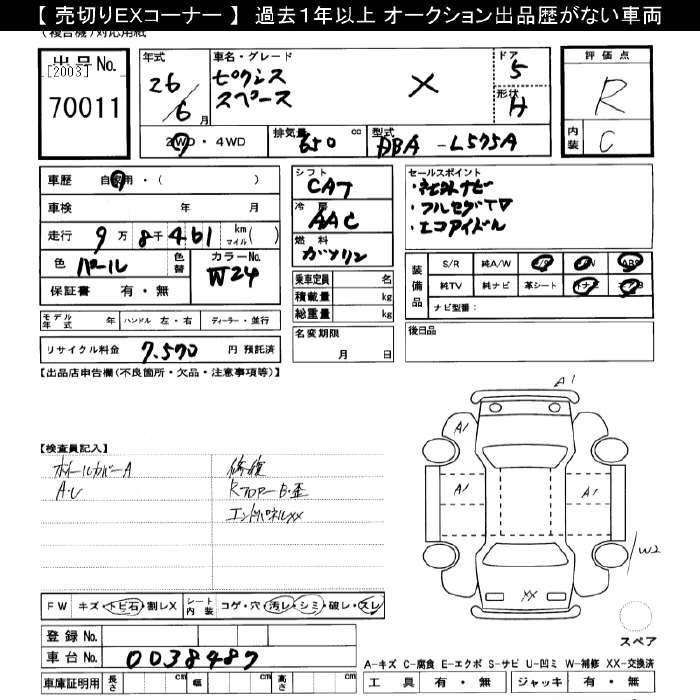 【 売切りEXコーナー 】 過去1年以上 オークション出品歴がない車両
(複合機)対応用紙
出品No.
[2003]
70011
年式
26/6月
車名・グレード
ピクシス
スペース
×
ドア
5
形状
H
評価点
R
内装
C
2WD・4WD
排気量 650 cc
型式 DBA -L575A
車歴 自家用・( )
車検 年 月
走行 9万8千461 km マイル( )
色 パール
色替
カラーNo. W24
保証書 有・無
シフト
CA7
冷房
AAC
燃料
ガソリン
乗車定員 名
積載量 kg
総重量 kg
セールスポイント
・社外ナビ
・フルセグTV
・エコアイドル
装備品
S/R 純A/W P/S P/W ABS
純TV 純ナビ 革シート 外ナビ エアB
ナビ型番:
モデル年式 年 ハンドル 左・右 ディーラー・並行
名変期限
月 日
後日品
リサイクル料金 7,570 円 預託済
【出品店申告欄(不良箇所・欠品・注意事項等)】
A1
A1
A1
A1
W2
XX
スペア
【検査員記入】
ホイールカバーA
A・U
修複
RフロアーB・歪
エンドパネルXX
FW キズ・トビ石・割レX
シート内装 コゲ・穴・汚レ・シミ・破レ・スレ
登録No.
車台No. 0038487
車庫証明用 長さ cm 幅 cm 高さ cm
A-キズ C-腐食 E-エクボ S-サビ U-凹ミ W-補修 XX-交換済
工具 有・無 ジャッキ 有・無